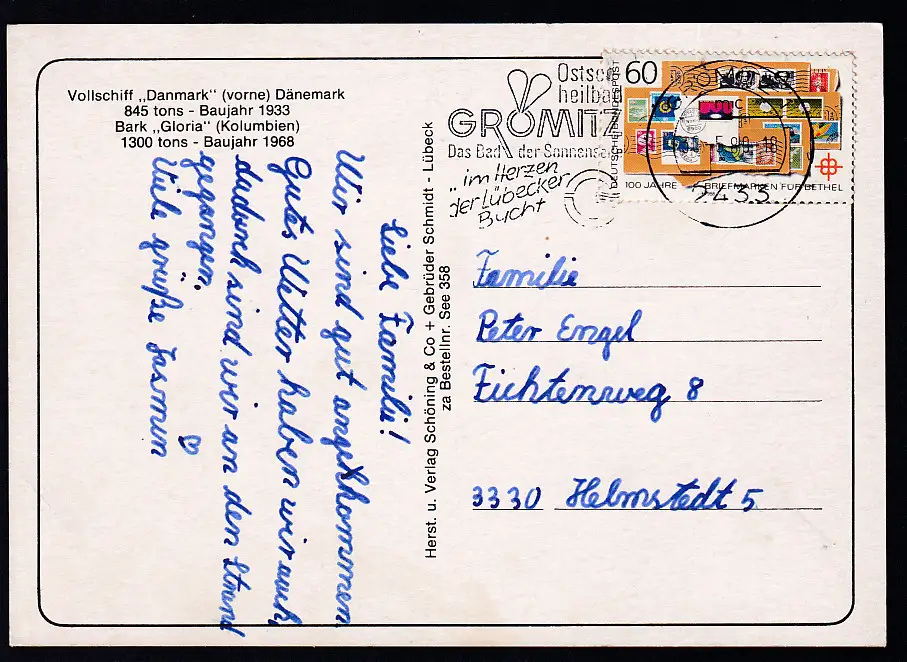 Vollschiff „Danmark" (vorne) Dänemark
845 tons - Baujahr 1933
Bark „Gloria" (Kolumbien)
1300 tons - Baujahr 1968
Liebe Familie!
Wir sind gut angekhommen
Gutes Wetter haben wir auch,
dadurch sind wir an den Strand
gegangen.
Viele grüße Jasmin
Herst. u. Verlag Schöning & Co + Gebrüder Schmidt - Lübeck
za Bestellnr. See 358
Ostsee
heilbad
GRÖMITZ
Das Bad der Sonnensa
im Herzen
der Lübecker
Bucht
60
DEUTSCHE BUNDESPOST
100 JAHRE BRIEFMARKEN FÜR BETHEL
2433
Familie
Peter Engel
Fichtenweg 8
3330 Helmstedt 5